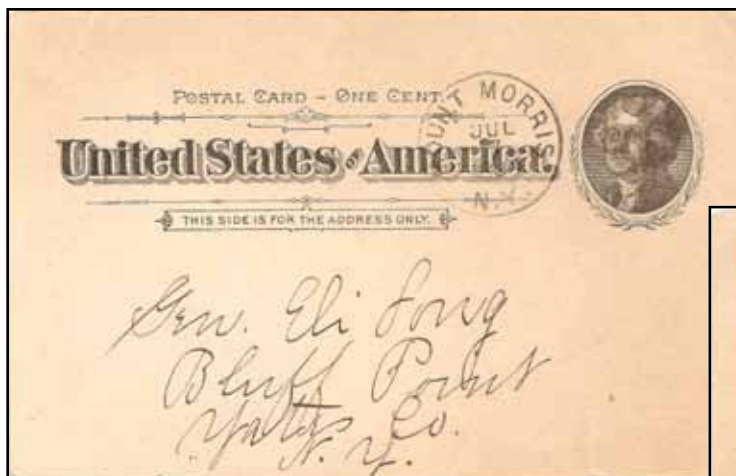 POSTAL CARD - ONE CENT.
United States OF America.
THIS SIDE IS FOR THE ADDRESS ONLY.
OUNT MORRIS
JUL
N.Y.
Gen. Eli Long
Bluff Point
Yates Co.
N. Y.